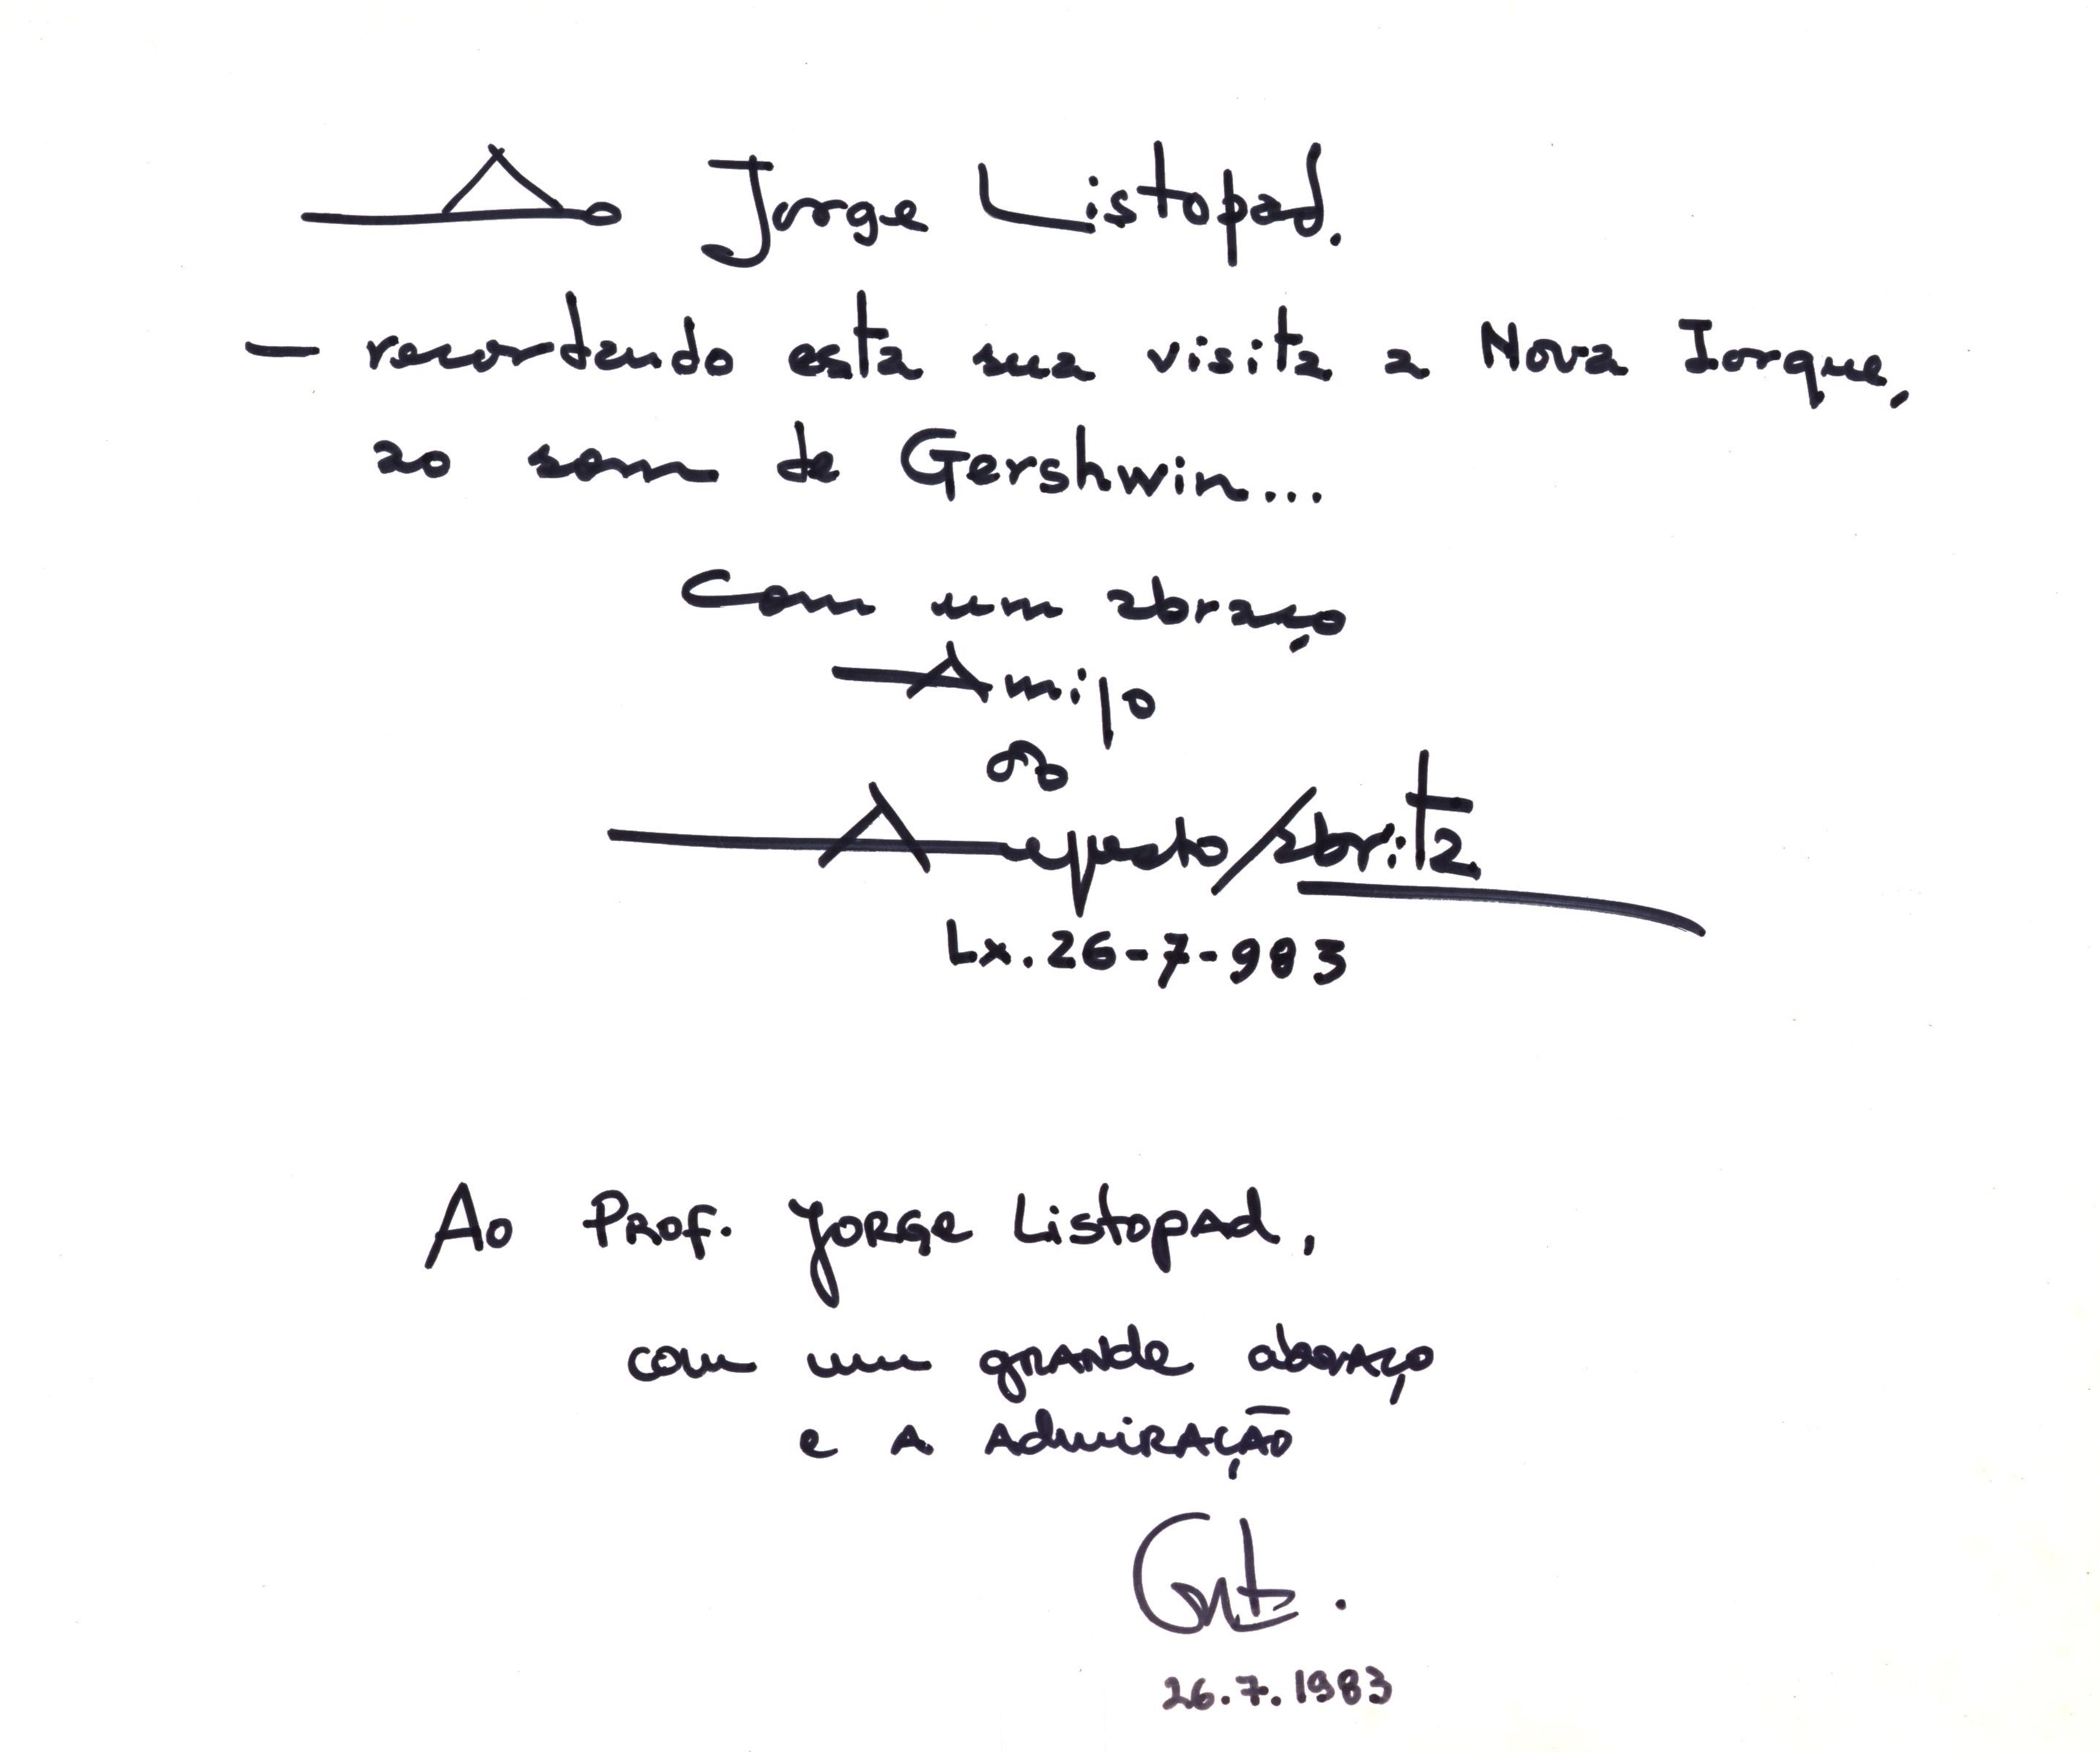 Ao Jorge Listopad.
— recordando esta sua visita a Nova Iorque,
ao som de Gershwin...
Com um abraço
Amigo
do
Augusto/Abrita
Lx. 26-7-983
Ao Prof. Jorge Listopad,
com um grande abraço
e a admiração
26.7.1983